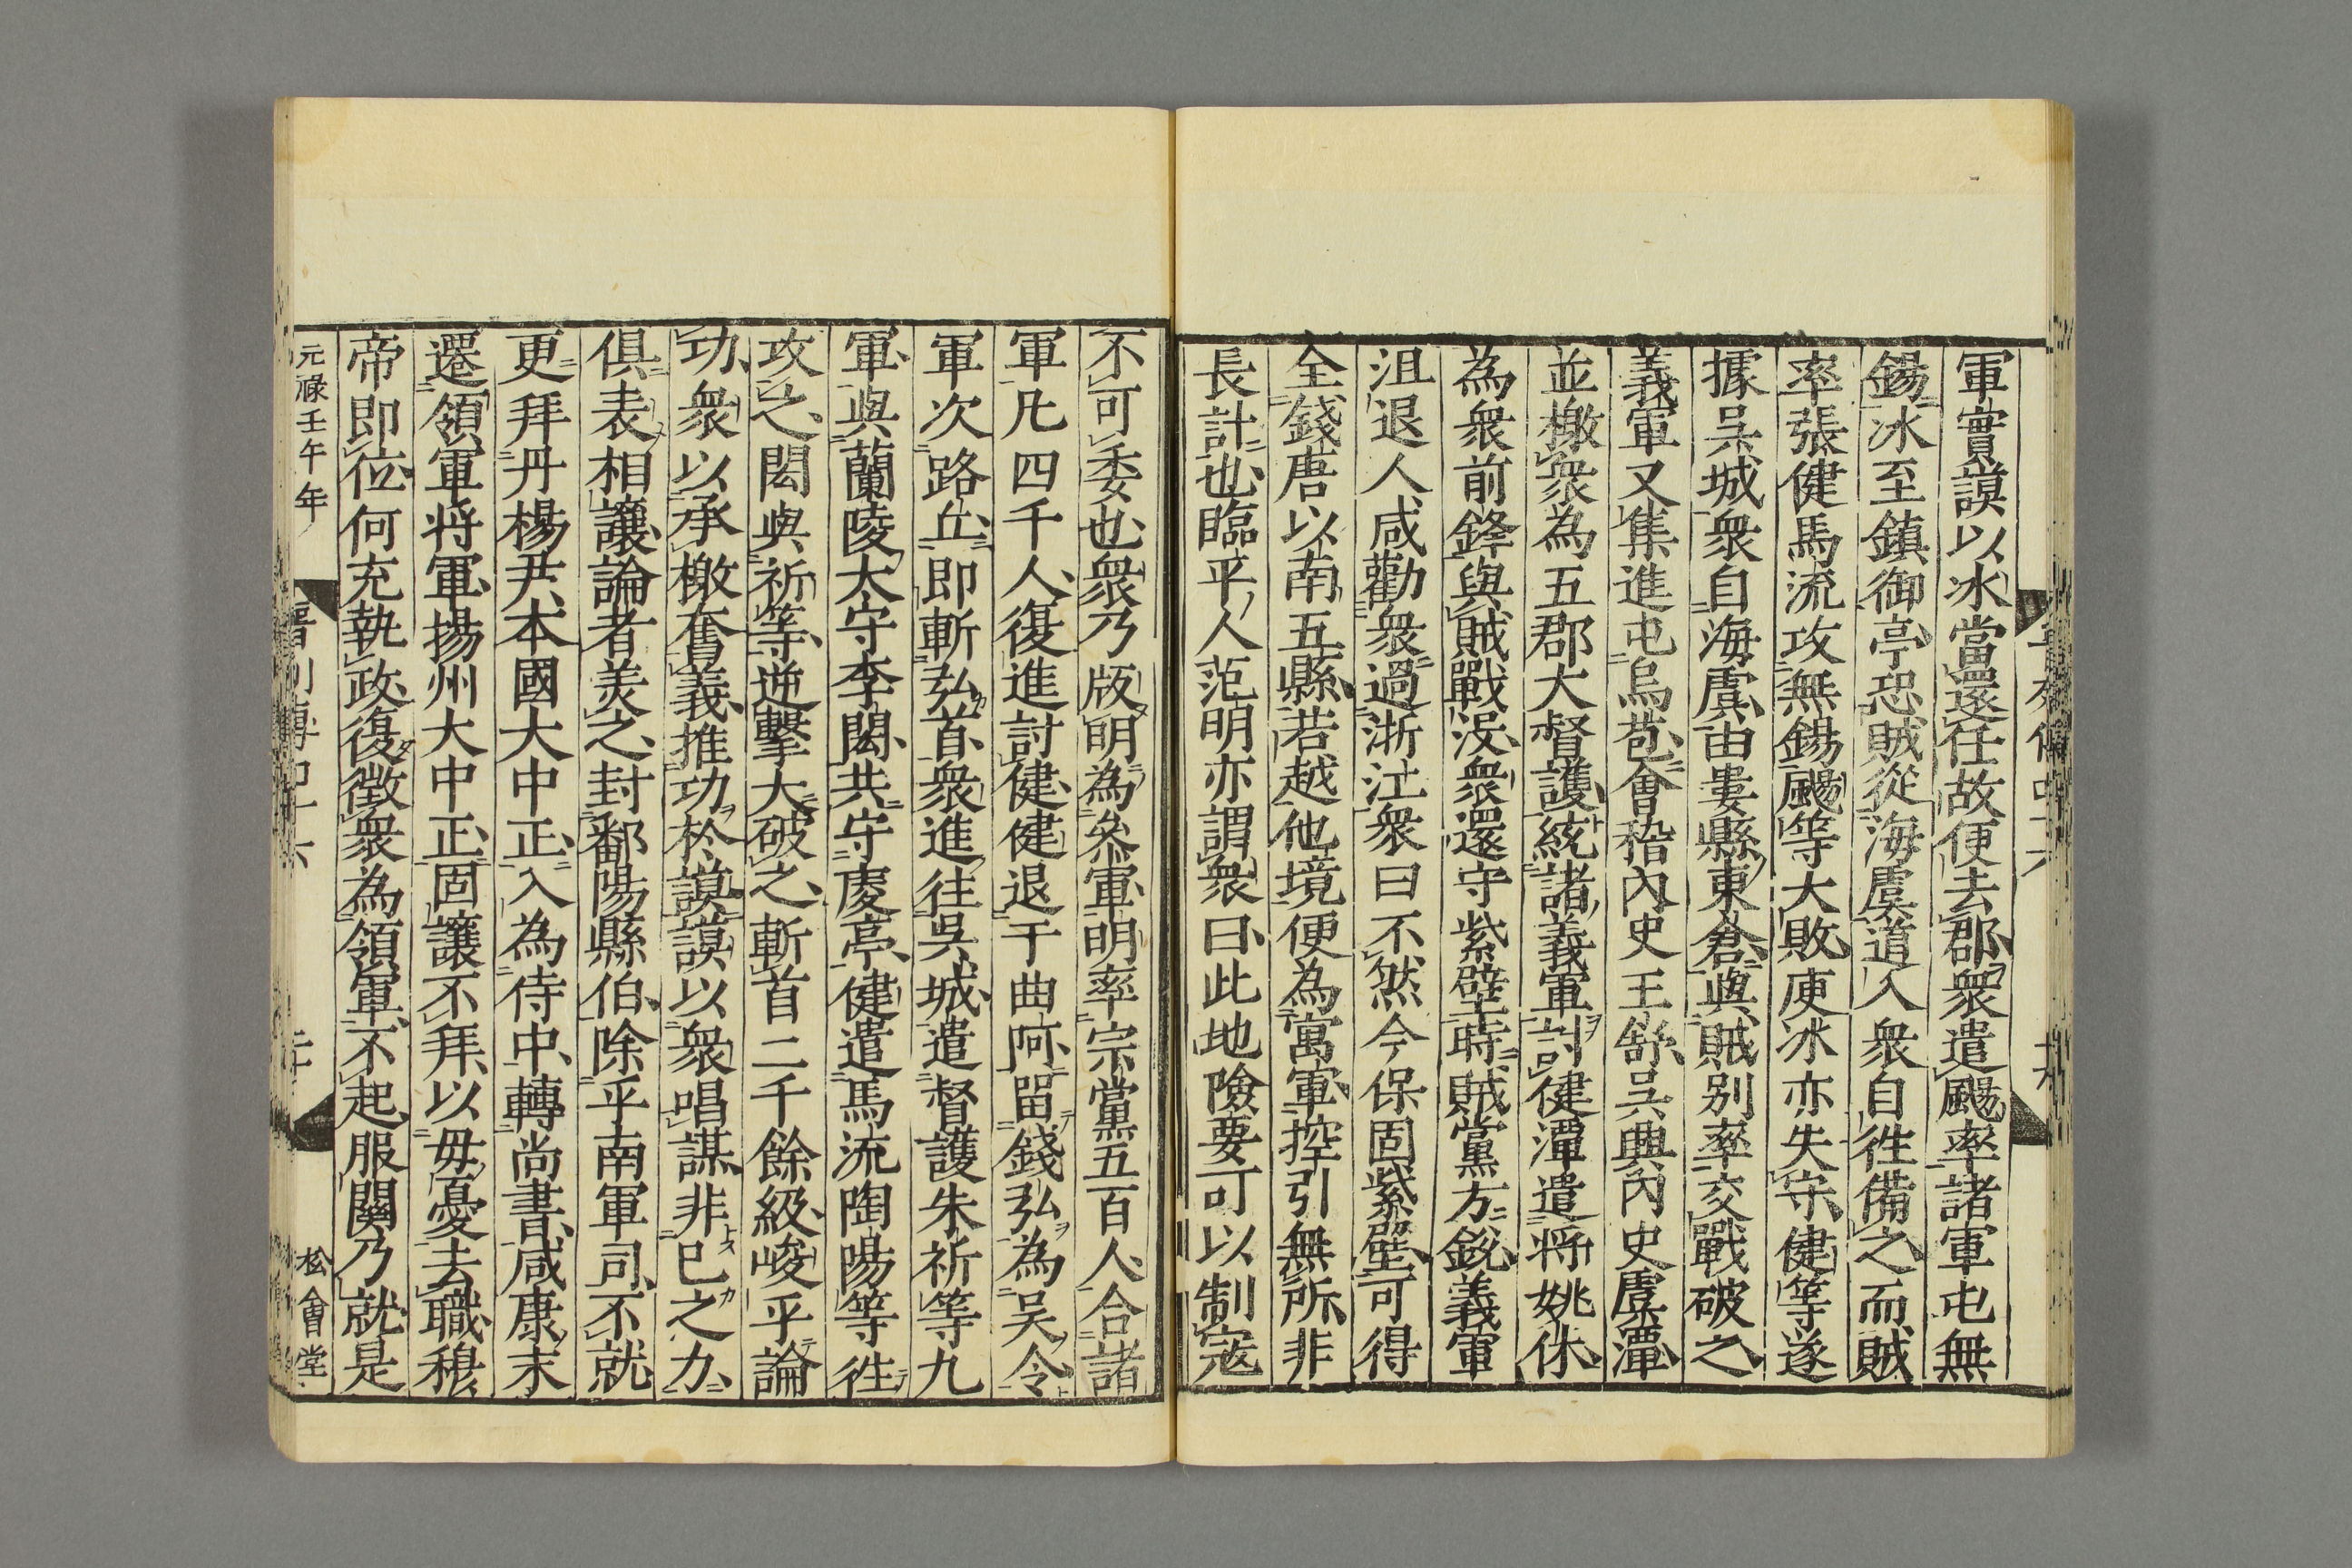 軍實謨以冰當還任故便去郡衆遣颺率諸軍屯無
錫冰至鎮御亭恐賊從海虞道入衆自徃備之而賊
率張健馬流攻無錫颺等大敗庾冰亦失守健等遂
據吳城衆自海虞由婁縣東倉與賊别率交戰破之
義軍又集進屯烏苞會稽內史王舒吳興內史虞潭
並檄衆為五郡大督護統諸義軍討健潭遣將姚休
為衆前鋒與賊戰没衆還守紫壁時賊黨方銳義軍
沮退人咸勸衆過浙江衆曰不然今保固紫壁可得
全錢唐以南五縣若越他境便為寓軍控引無所非
長計也臨平人范明亦謂衆曰此地險要可以制寇
不可委也衆乃版明為叅軍明率宗黨五百人合諸
軍凡四千人復進討健健退于曲阿留錢弘為吴令
軍次路丘即斬弘首衆進往吳城遣督護朱祈等九
軍與蘭陵太守李閎共守庱亭健遣馬流陶陽等徃
攻之閎與祈等逆擊大破之斬首二千餘級峻平論
功衆以承檄奮義推功於謨謨以衆唱謀非已之力
俱表相讓論者羙之封鄱陽縣伯除平南軍司不就
更拜丹楊尹本國大中正入為侍中轉尚書咸康末
遷領軍將軍揚州大中正固讓不拜以毋憂去職穆
帝即位何充執政復徵衆為領軍不起服闋乃就是
元禄壬午年
松會堂